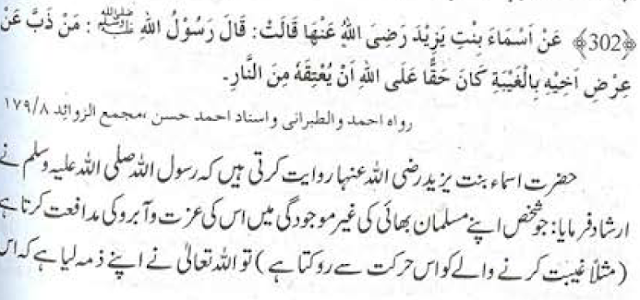 ﴿302﴾ عَنْ اَسْمَاءَ بِنْتِ يَزِيْدَ رَضِىَ اللهُ عَنْهَا قَالَتْ: قَالَ رَسُوْلُ اللهِ ﷺ: مَنْ ذَبَّ عَنْ
عِرْضِ اَخِيْهِ بِالْغَيْبَةِ كَانَ حَقًّا عَلَى اللهِ اَنْ يُعْتِقَهُ مِنَ النَّارِ۔
رواه احمد والطبرانى واسناد احمد حسن، مجمع الزوائد ٨/١٧٩
حضرت اسماء بنت یزید رضی اللہ عنہا روایت کرتی ہیں کہ رسول اللہ صلی اللہ علیہ وسلم نے
ارشاد فرمایا: جو شخص اپنے مسلمان بھائی کی غیر موجودگی میں اس کی عزت و آبرو کی مدافعت کرتا ہے
(مثلاً غیبت کرنے والے کو اس حرکت سے روکتا ہے) تو اللہ تعالیٰ نے اپنے ذمہ لیا ہے کہ اس